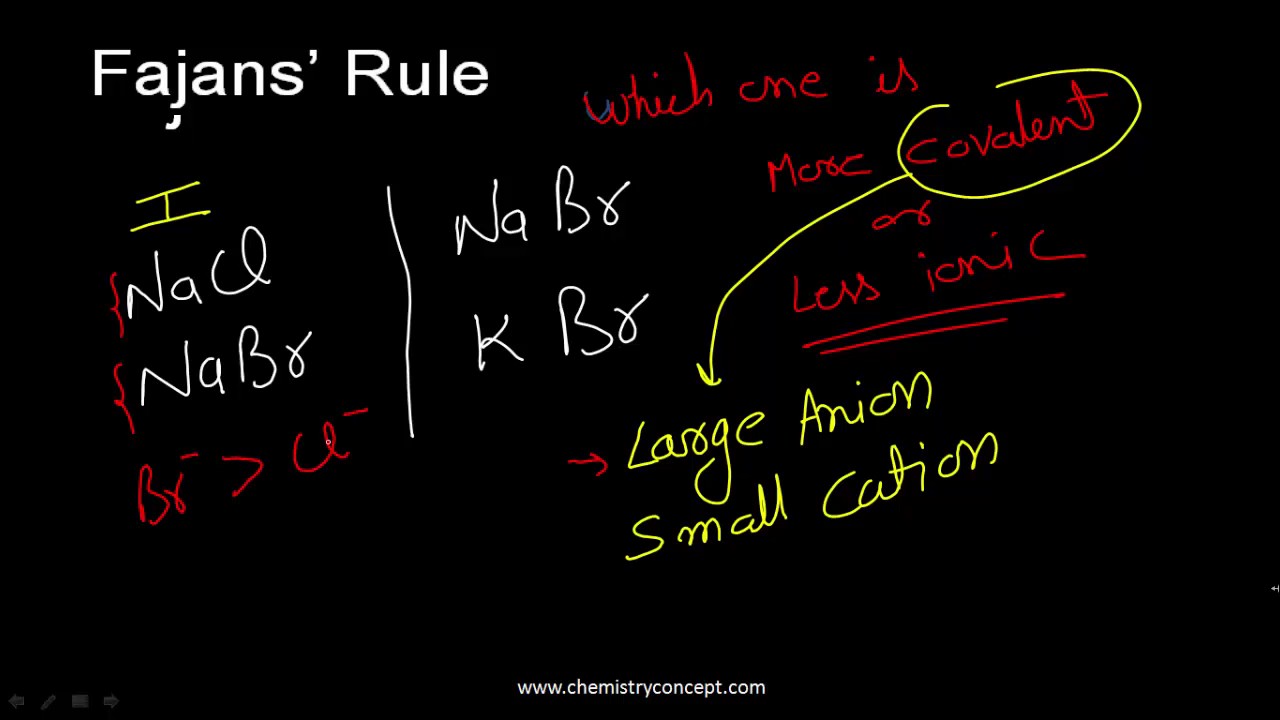 Fajans’ Rule
which one is
More covalent
or
Less ionic
I
NaCl
NaBr
Br⁻ > Cl⁻
NaBr
KBr
→ Large Anion
Small Cation
www.chemistryconcept.com